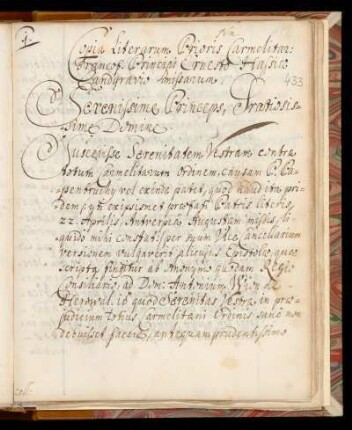 1.
Copia literarum Prioris Carmelitar:
Principi Ernesto Hassiæ
Landgravio missarum
433
Serenissime Princeps, Gratiosis-
sime Domine
Suscepisse Serenitatem Vestram contra
totum Carmelitarum Ordinem, causam P. Pa-
penbrochij vel exinde patet, quod haud ita pri-
dem, uti ex ipsismet præfati Patris literis,
22. Aprilis Antverpiæ Augustam missis, li-
quido mihi constat, per suum Vice Cancellarium
versionem vulgaverit alicujus Epistolæ, quæ
scripta fingitur ab Anonymo quodam Regio
Consiliario, ad Don: Antonium Wion de
Herowal. id quod Serenitas Vestra, in præ-
judicium totius Carmelitani Ordinis sane non
debuisset facere, antequam prudentissimo